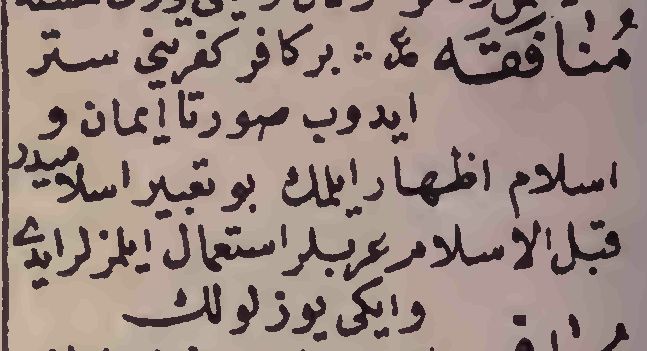 مُنافَقَه عم : بر كافر كفريني ستر
ايدوب صورتا ايمان و
اسلام اظهار ايلمك بو تعبير اسلاميدر
قبل الاسلام عربلر استعمال ايلمزلر ايدى
و ايكى يوزلولك